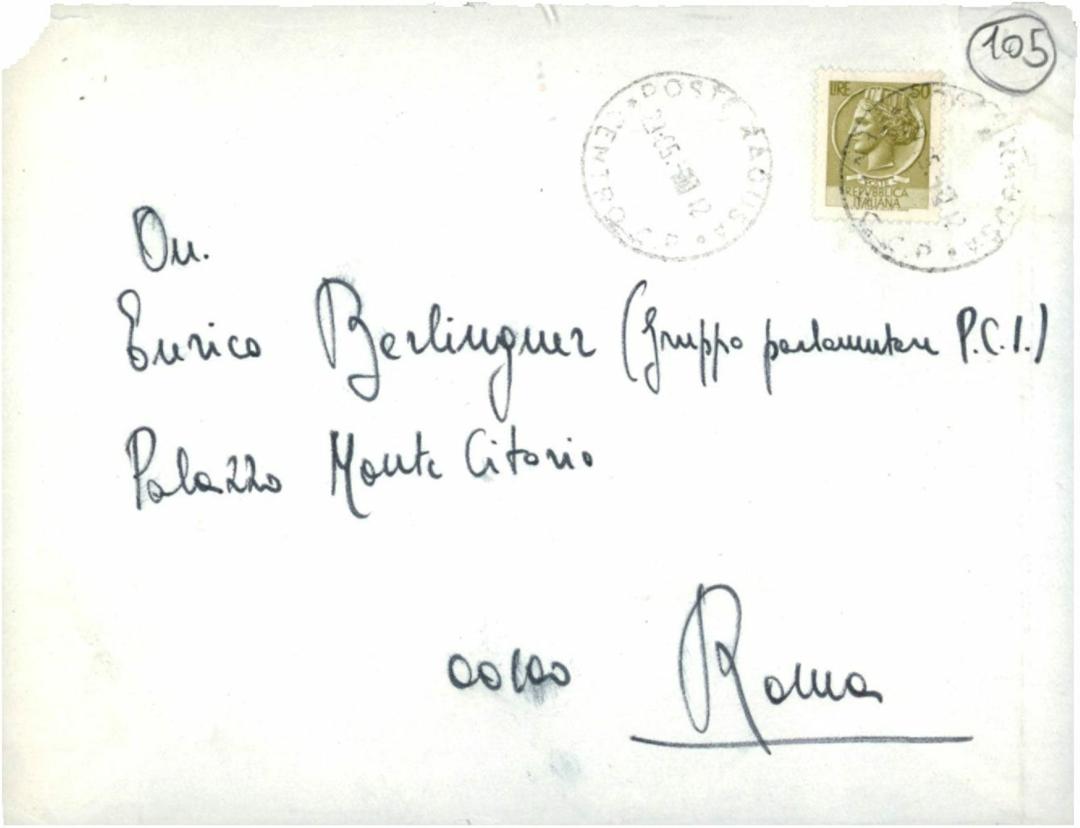 105
POSTE RAGUSA
LIRE 50
POSTE
REPVBBLICA
ITALIANA
On.
Enrico Berlinguer (Gruppo parlamentare P.C.I.)
Palazzo Monte Citorio
00100 Roma